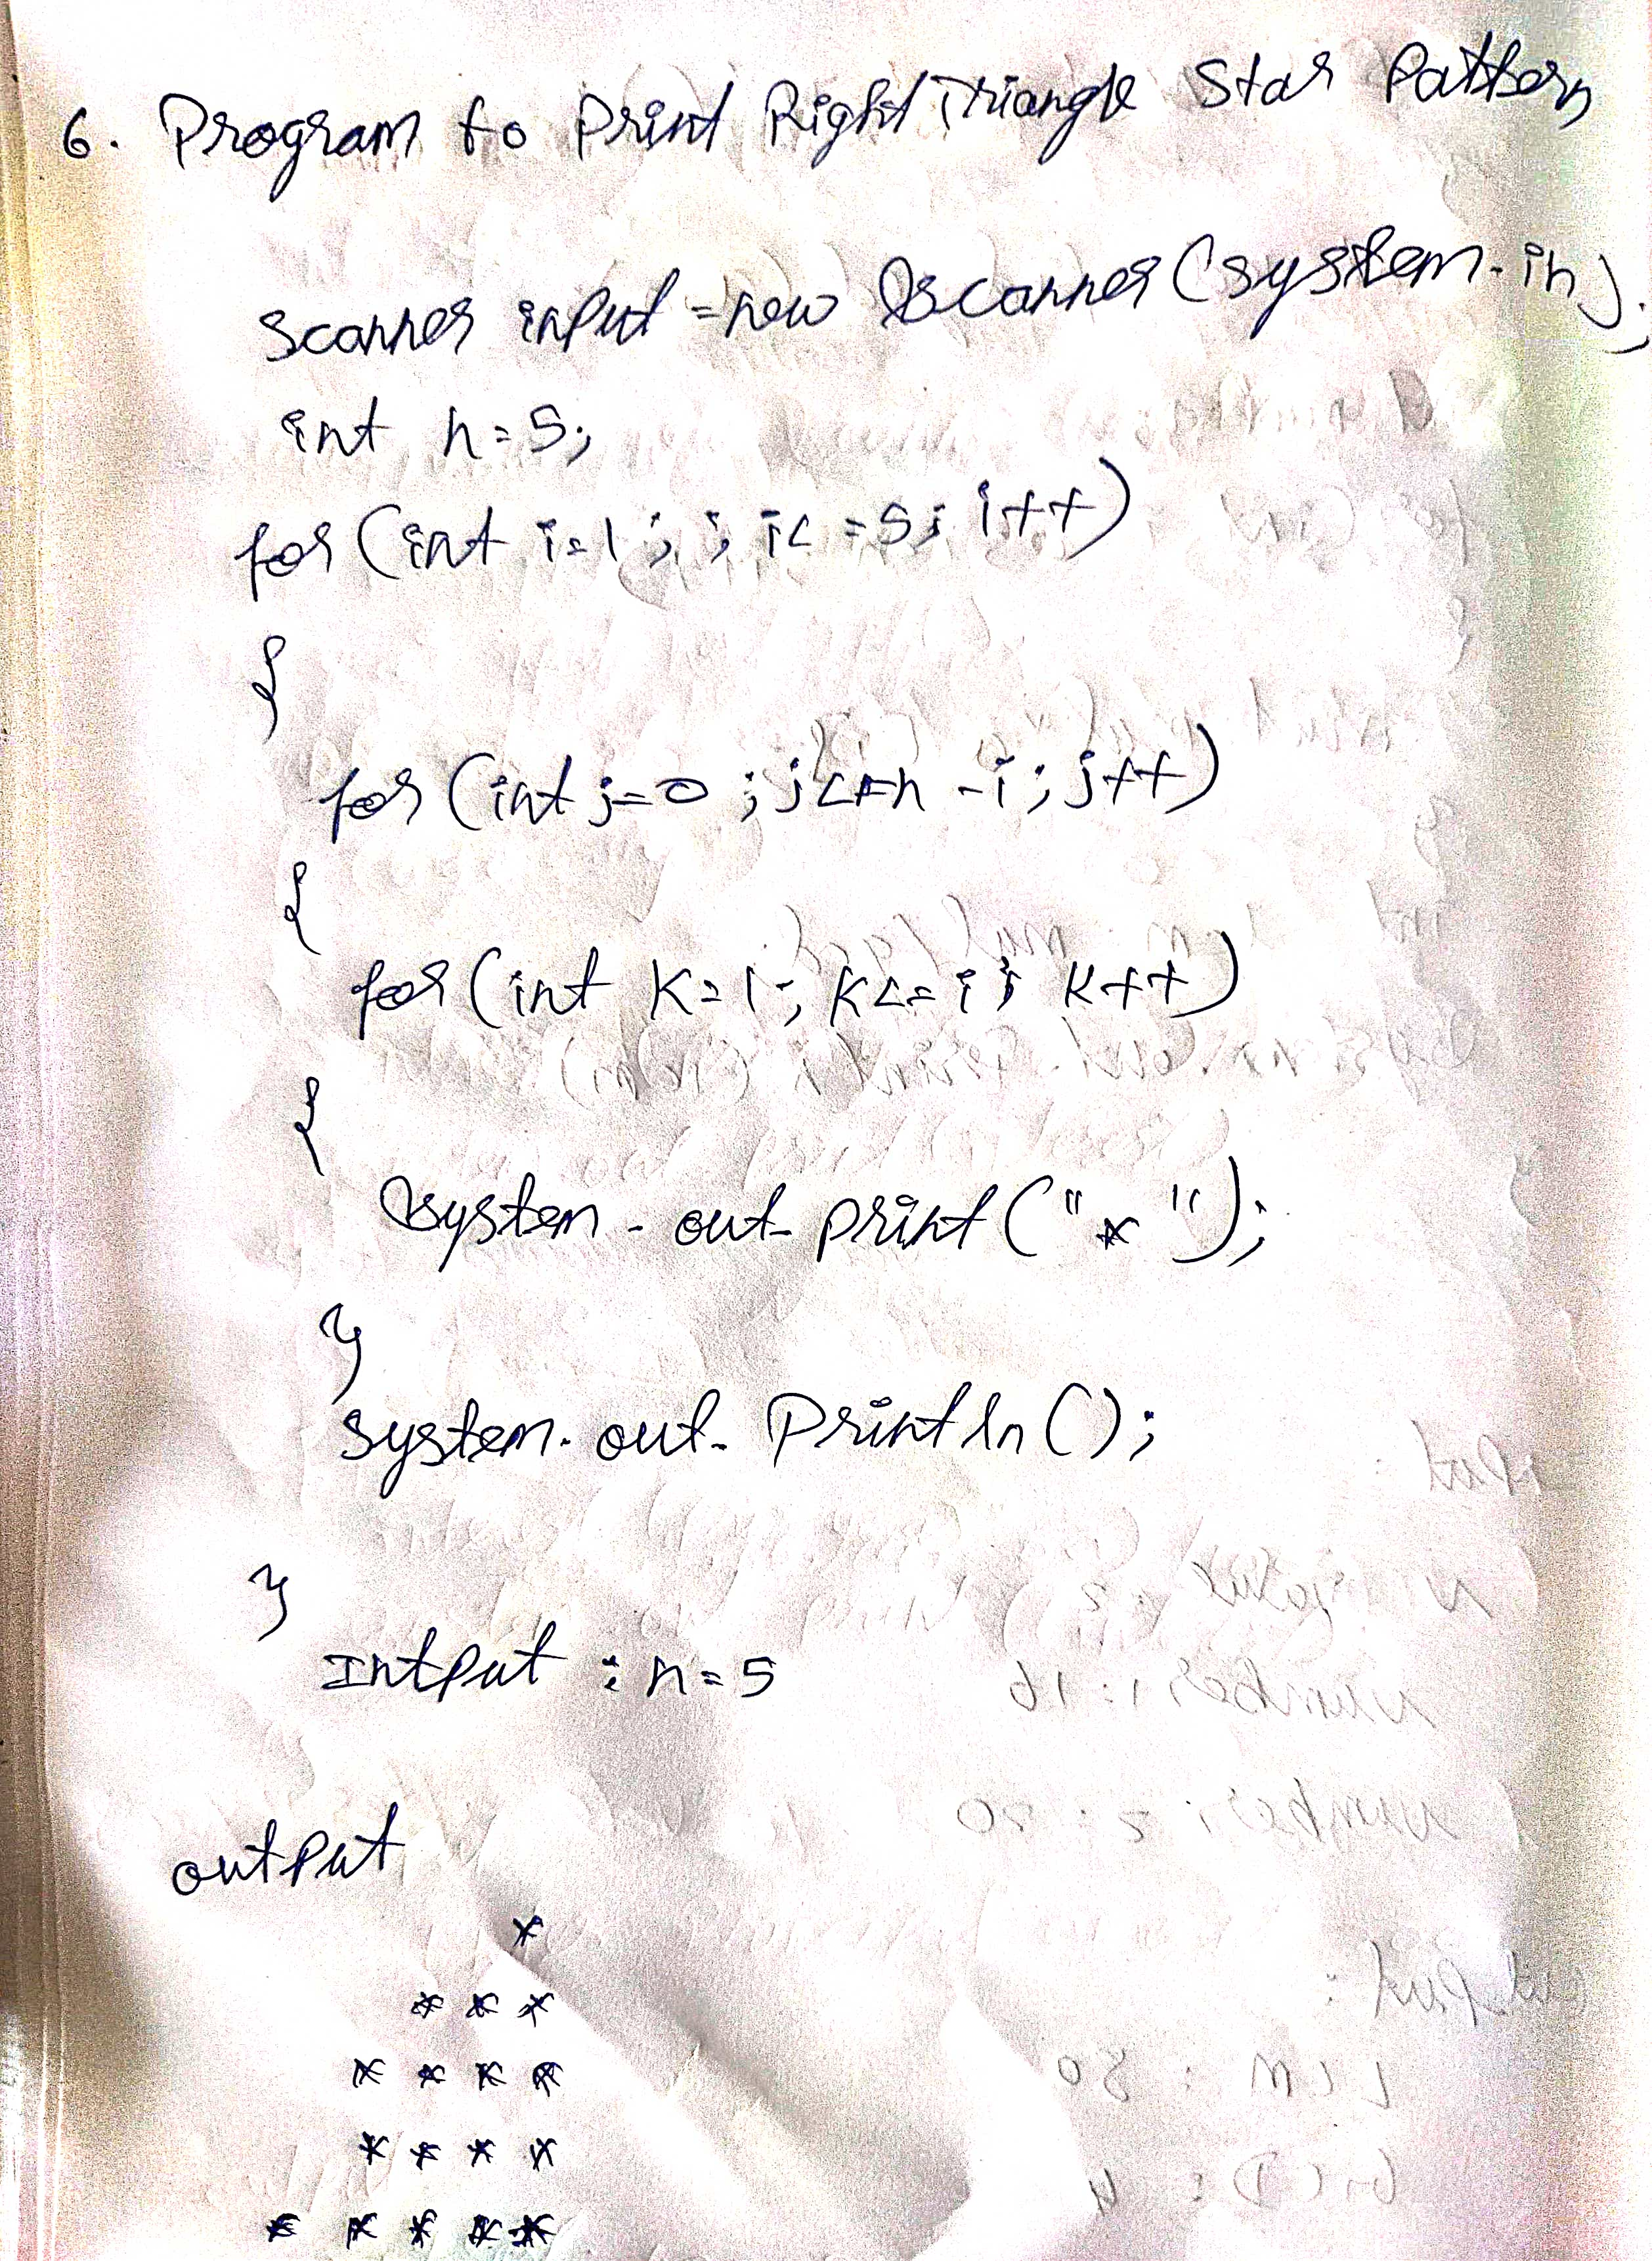 6. Program to Print Right Triangle Star Pattern
Scanner input = new Scanner (system.in);
int n=5;
for (int i=1; ; i<=5; i++)
{
for (int j=0 ; j<=n -i ; j++)
{
for (int k=1; k<=i; k++)
{
System.out.print("*");
}
System.out.Println();
}
Intput : n=5
output
*
* * *
* * * *
* * * *
* * * * *